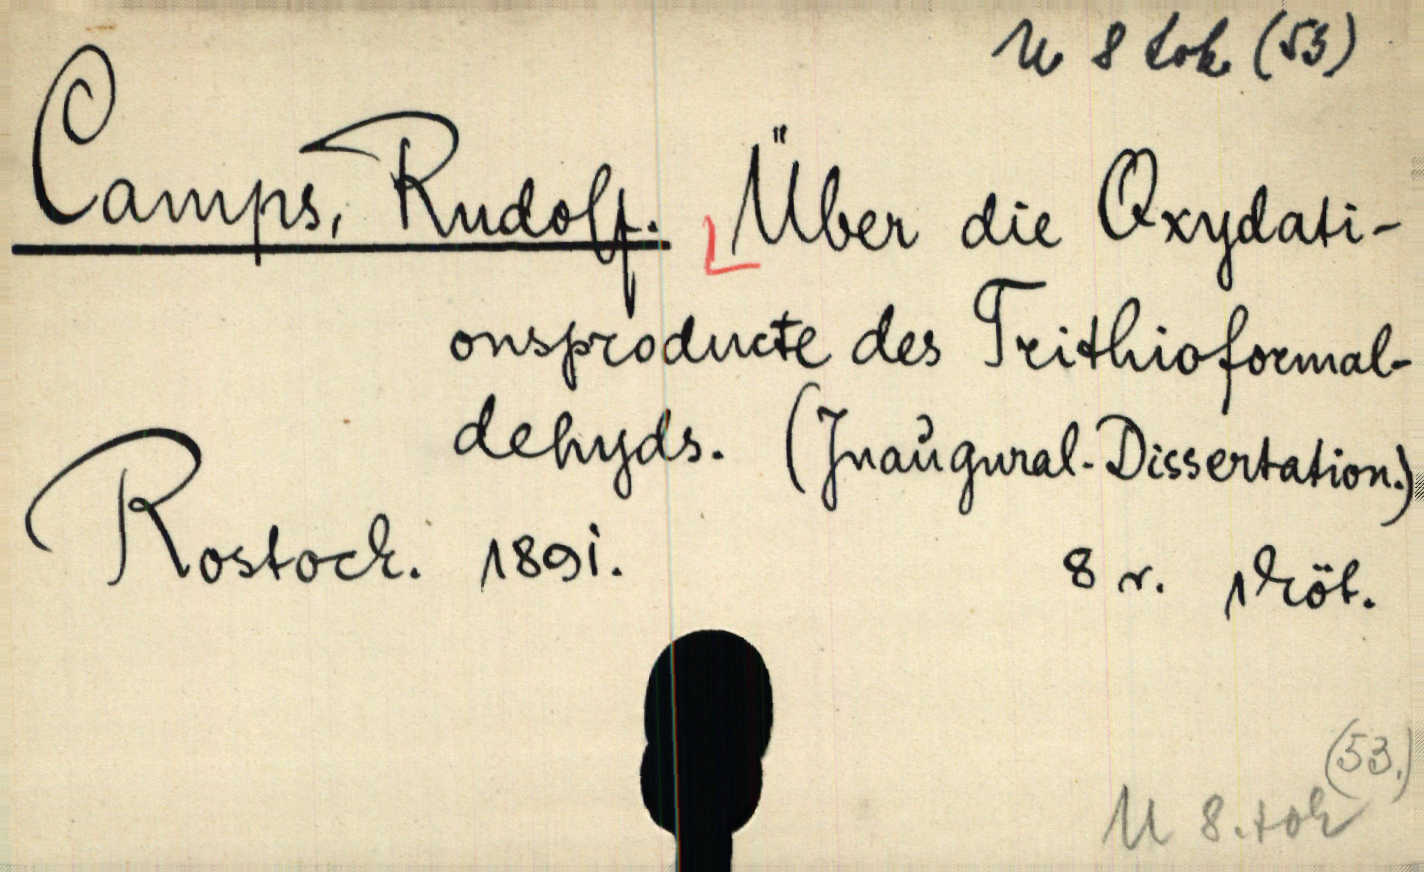 U 8 tok (53)
Camps, Rudolf. Über die Oxydati-
onsproducte des Trithioformal-
dehyds. (Inaugural-Dissertation.)
Rostock. 1891.
8 r. 1 köt.
(53.)
U 8. tok